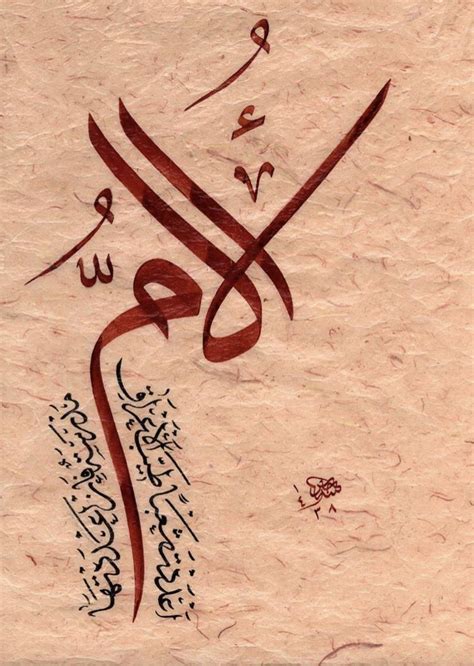 الأُمُّ
مَدْرَسَةٌ إِذَا أَعْدَدْتَهَا
أَعْدَدْتَ شَعْبًا طَيِّبَ الأَعْرَاقِ
١٤٣٨